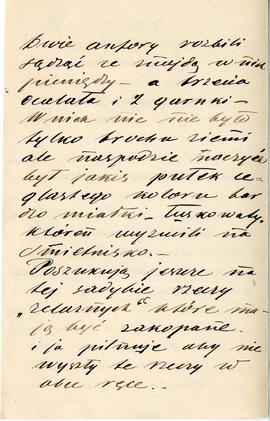 Dwie amfory rozbili
sądząc że znajdą w nich
pieniądze – a trzecia
ocalała i 2 garnki –
W nich nic nie było
tylko trocha ziemi
ale naspodzie naczyń
był jakiś pyłek ce-
glastego koloru bar
dzo miałki – łuskowaty,
któren wyrzucili na
śmietnisko. –
Poszukują jeszcze na
tej sadybie rzeczy
„żelaznych" które ma-
ją być zakopane.
i ja pilnuję aby nie
wyszły te rzeczy w
obce ręce. –